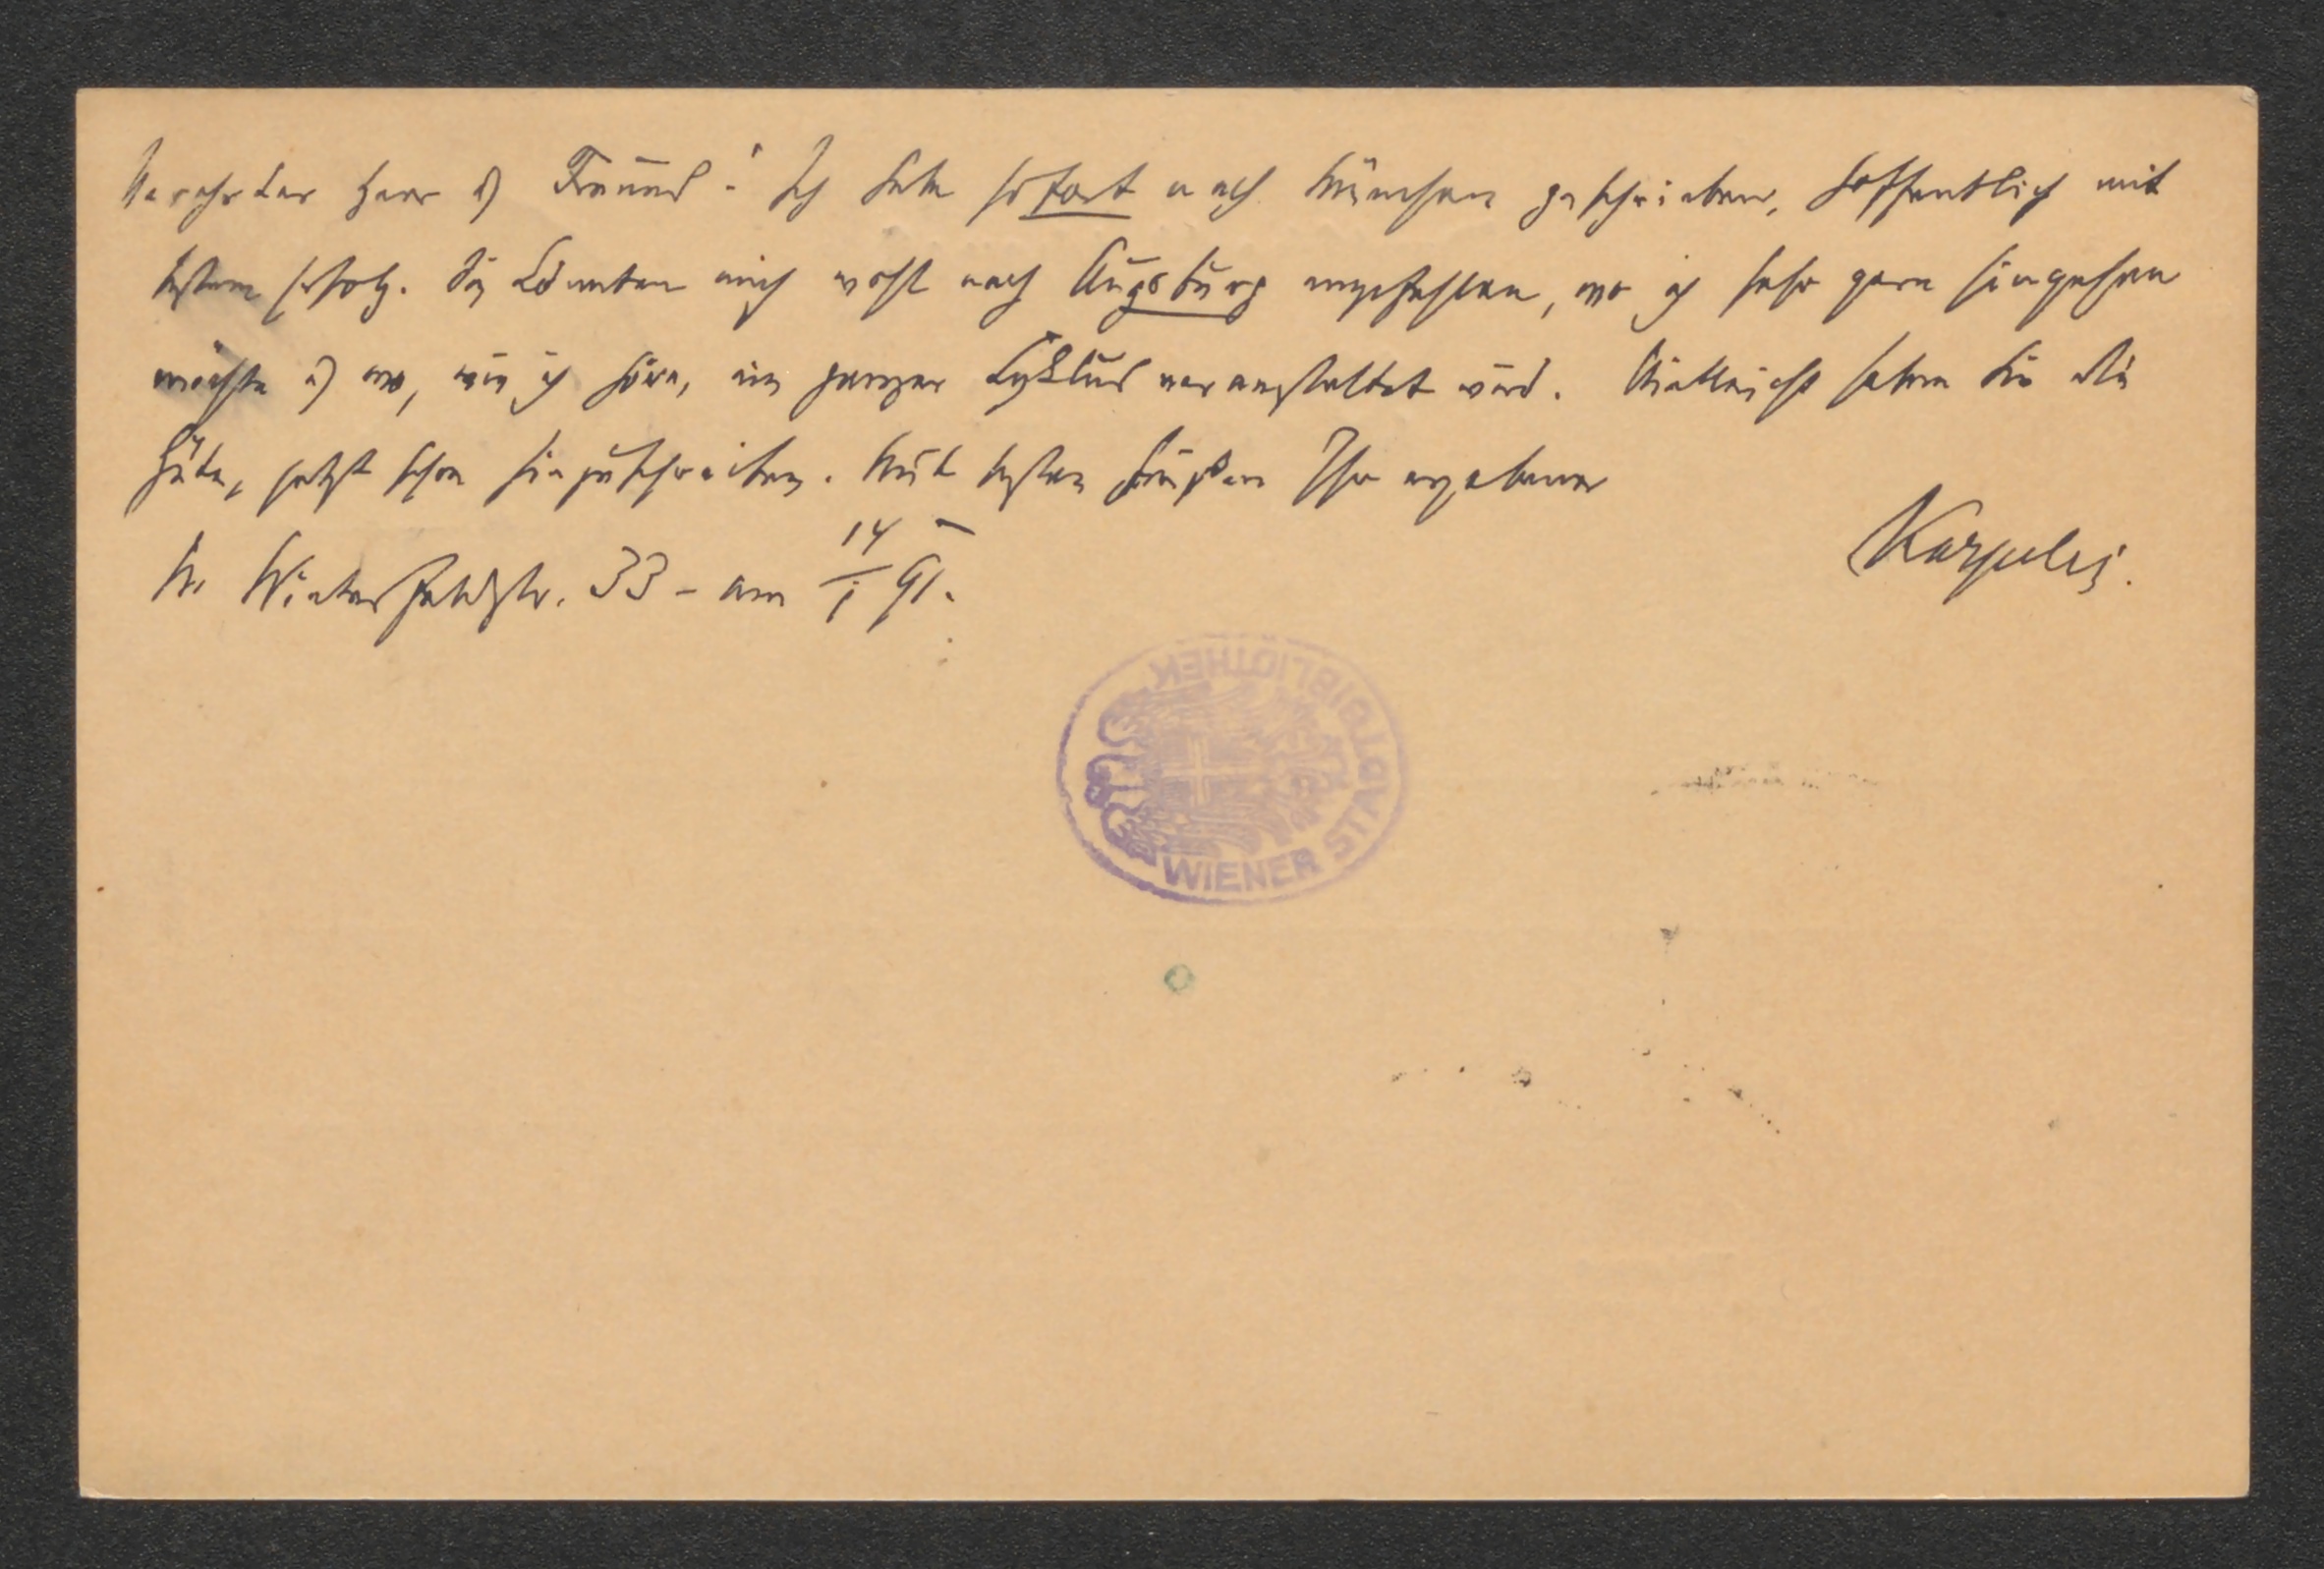 Verehrter Herr u Freund! Ich habe sofort nach München geschrieben, hoffentlich mit
bestem Erfolg. Sie könnten mich wohl nach Augsburg empfehlen, wo ich sehr gern hingehen
möchte u wo, wie ich höre, ein ganzer Cyklus veranstaltet wird. Vielleicht haben Sie die
Güte, jetzt schon hinzuschreiben. Mit besten Grüßen Ihr ergebener
Karpeles.
W. Winterfeldstr. 33 - am 14/1 91.
WIENER STADTBIBLIOTHEK